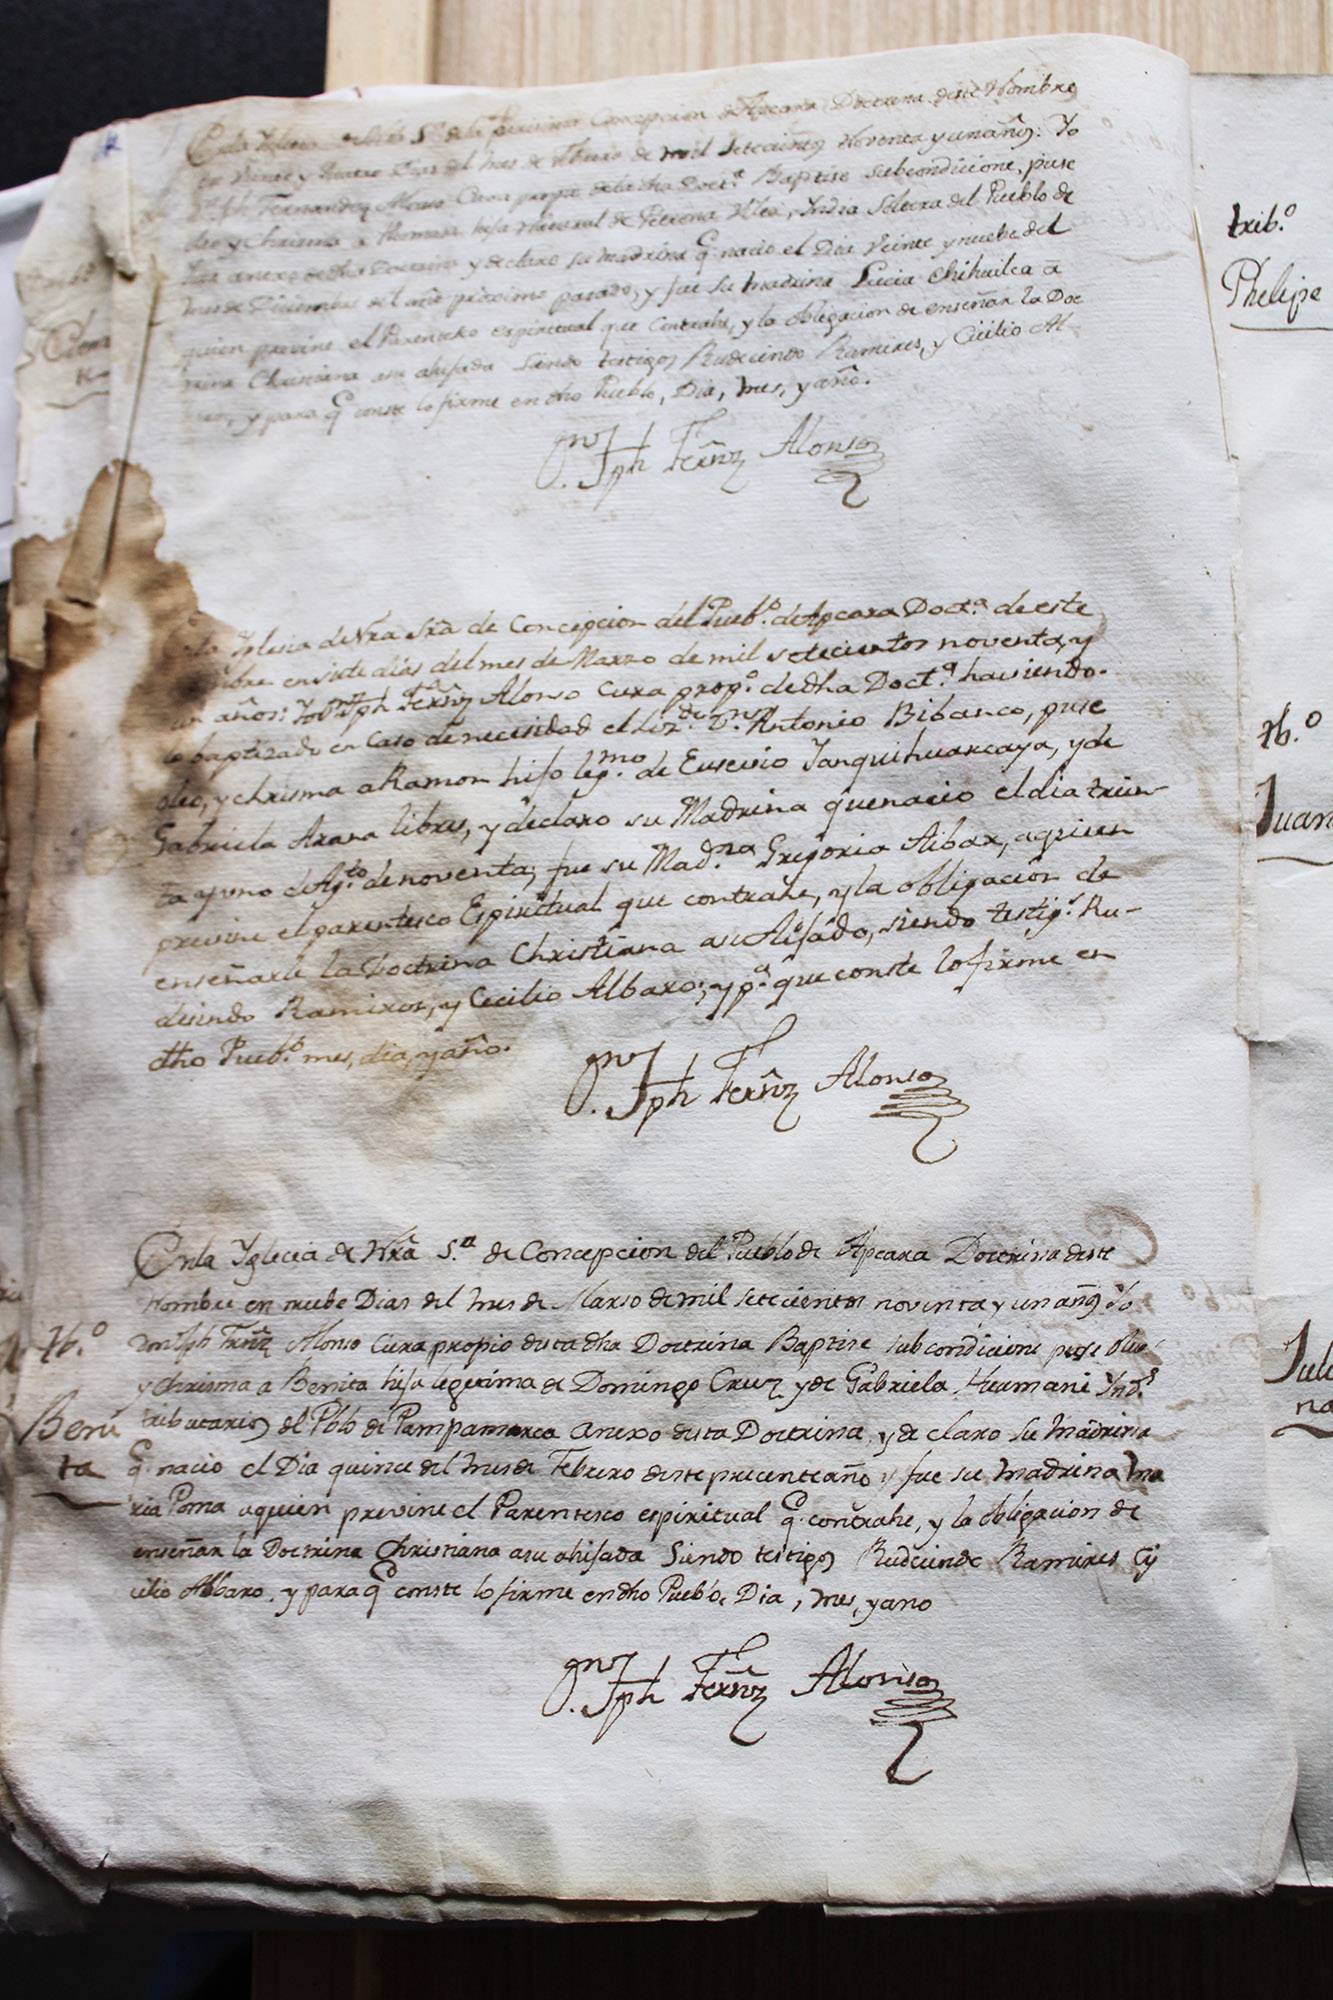 en veinte y quatro Dias del mes de Febrero de mil setecientos Noventa y un años: Yo
Fernandez Alonso Cura propio de la dha Doct.ª Baptise subcondicione, puse
oleo y Chrisma a Thomasa hija Natural de Petrona, Yndia Soltera del Pueblo de
anexo de dha Doctrina y declaro su madrina q̃ nacio el Dia Veinte y nuebe del
mes de Diciembre del año proximo pasado, y fue su madrina Lucia Chihuilca a
quien previne el Parentesco espiritual que Contrahe, y la obligacion de enseñar la Doc
trina Christiana a su ahijada Siendo testigos Rudecindo Ramires, y Cicilio Al-
y para q̃ conste lo firme en dho Pueblo, Dia, mes, y año.
Jph Ferñz Alonso
Yglesia de Nra Sra de Concepcion del Pueb.º de Apcara Doct.ª de este
mbre en siete dias del mes de Marzo de mil setecientos noventa, y
un años: Yo Dn Jph Ferñz Alonso Cura prop.º de dha Doct.ª haviendo-
lo baptizado en Caso de necesidad el Liz.do Dn Antonio Bibanco, puse
oleo, y chrisma a Ramon hijo leg.mo de Eusevio Yanquihuarcaya, y de
Gabriela Arana libres, y declaro su Madrina que nacio el dia trein-
ta y uno de Ag.to de noventa, fue su Mad.na Gregoria Aibar, a quien
previne el parentesco Espiritual que contrahe, y la obligacion de
enseñarle la Doctrina Christiana a su Aijado, siendo testig.s Ru-
desindo Ramires, y Cecilio Albaro; y p.ª que conste lo firme en
dho Pueb.º mes, dia, y año.
Jph Ferñz Alonso
En la Yglecia de Nrã S.ra de Concepcion del Pueblo de Apcara Doctrina deste
Nombre en nuebe Dias del Mes de Marso de mil setecientos noventa y un años Yo
Dn Jph Ferñz Alonso Cura propio desta dha Doctrina Baptise subcondicione puse Oleo
y Chrisma a Benita hija legitima de Domingo Cruz y de Gabriela Huamani Ynd.s
tributarios del Pblo de Pampamarca anexo desta Doctrina, y de claro su madrina
q̃ nacio el Dia quince del Mes de Febrero deste precente año y fue su madrina Ma
ria Poma a quien previne el Parentesco espiritual q̃ contrahe, y la obligacion de
enseñar la Doctrina Christiana a su ahijada Siendo testigos Rudecindo Ramires Cy
cilio Albaro. y para q̃ conste lo firme en dho Pueblo, Dia, mes, y ano
Jph Ferñz Alonso
tb.º
Beni
ta
trib.º
Phelipe
tb.º
Juan
Juli
na